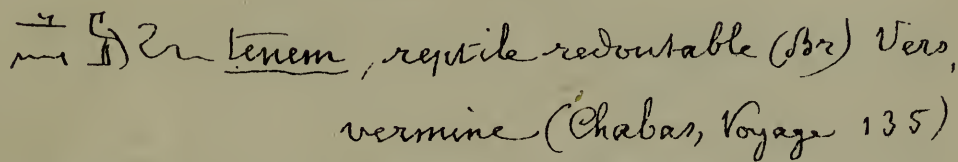 tenem, reptile redoutable (Br) Vers,
vermine (Chabas, Voyage 135)